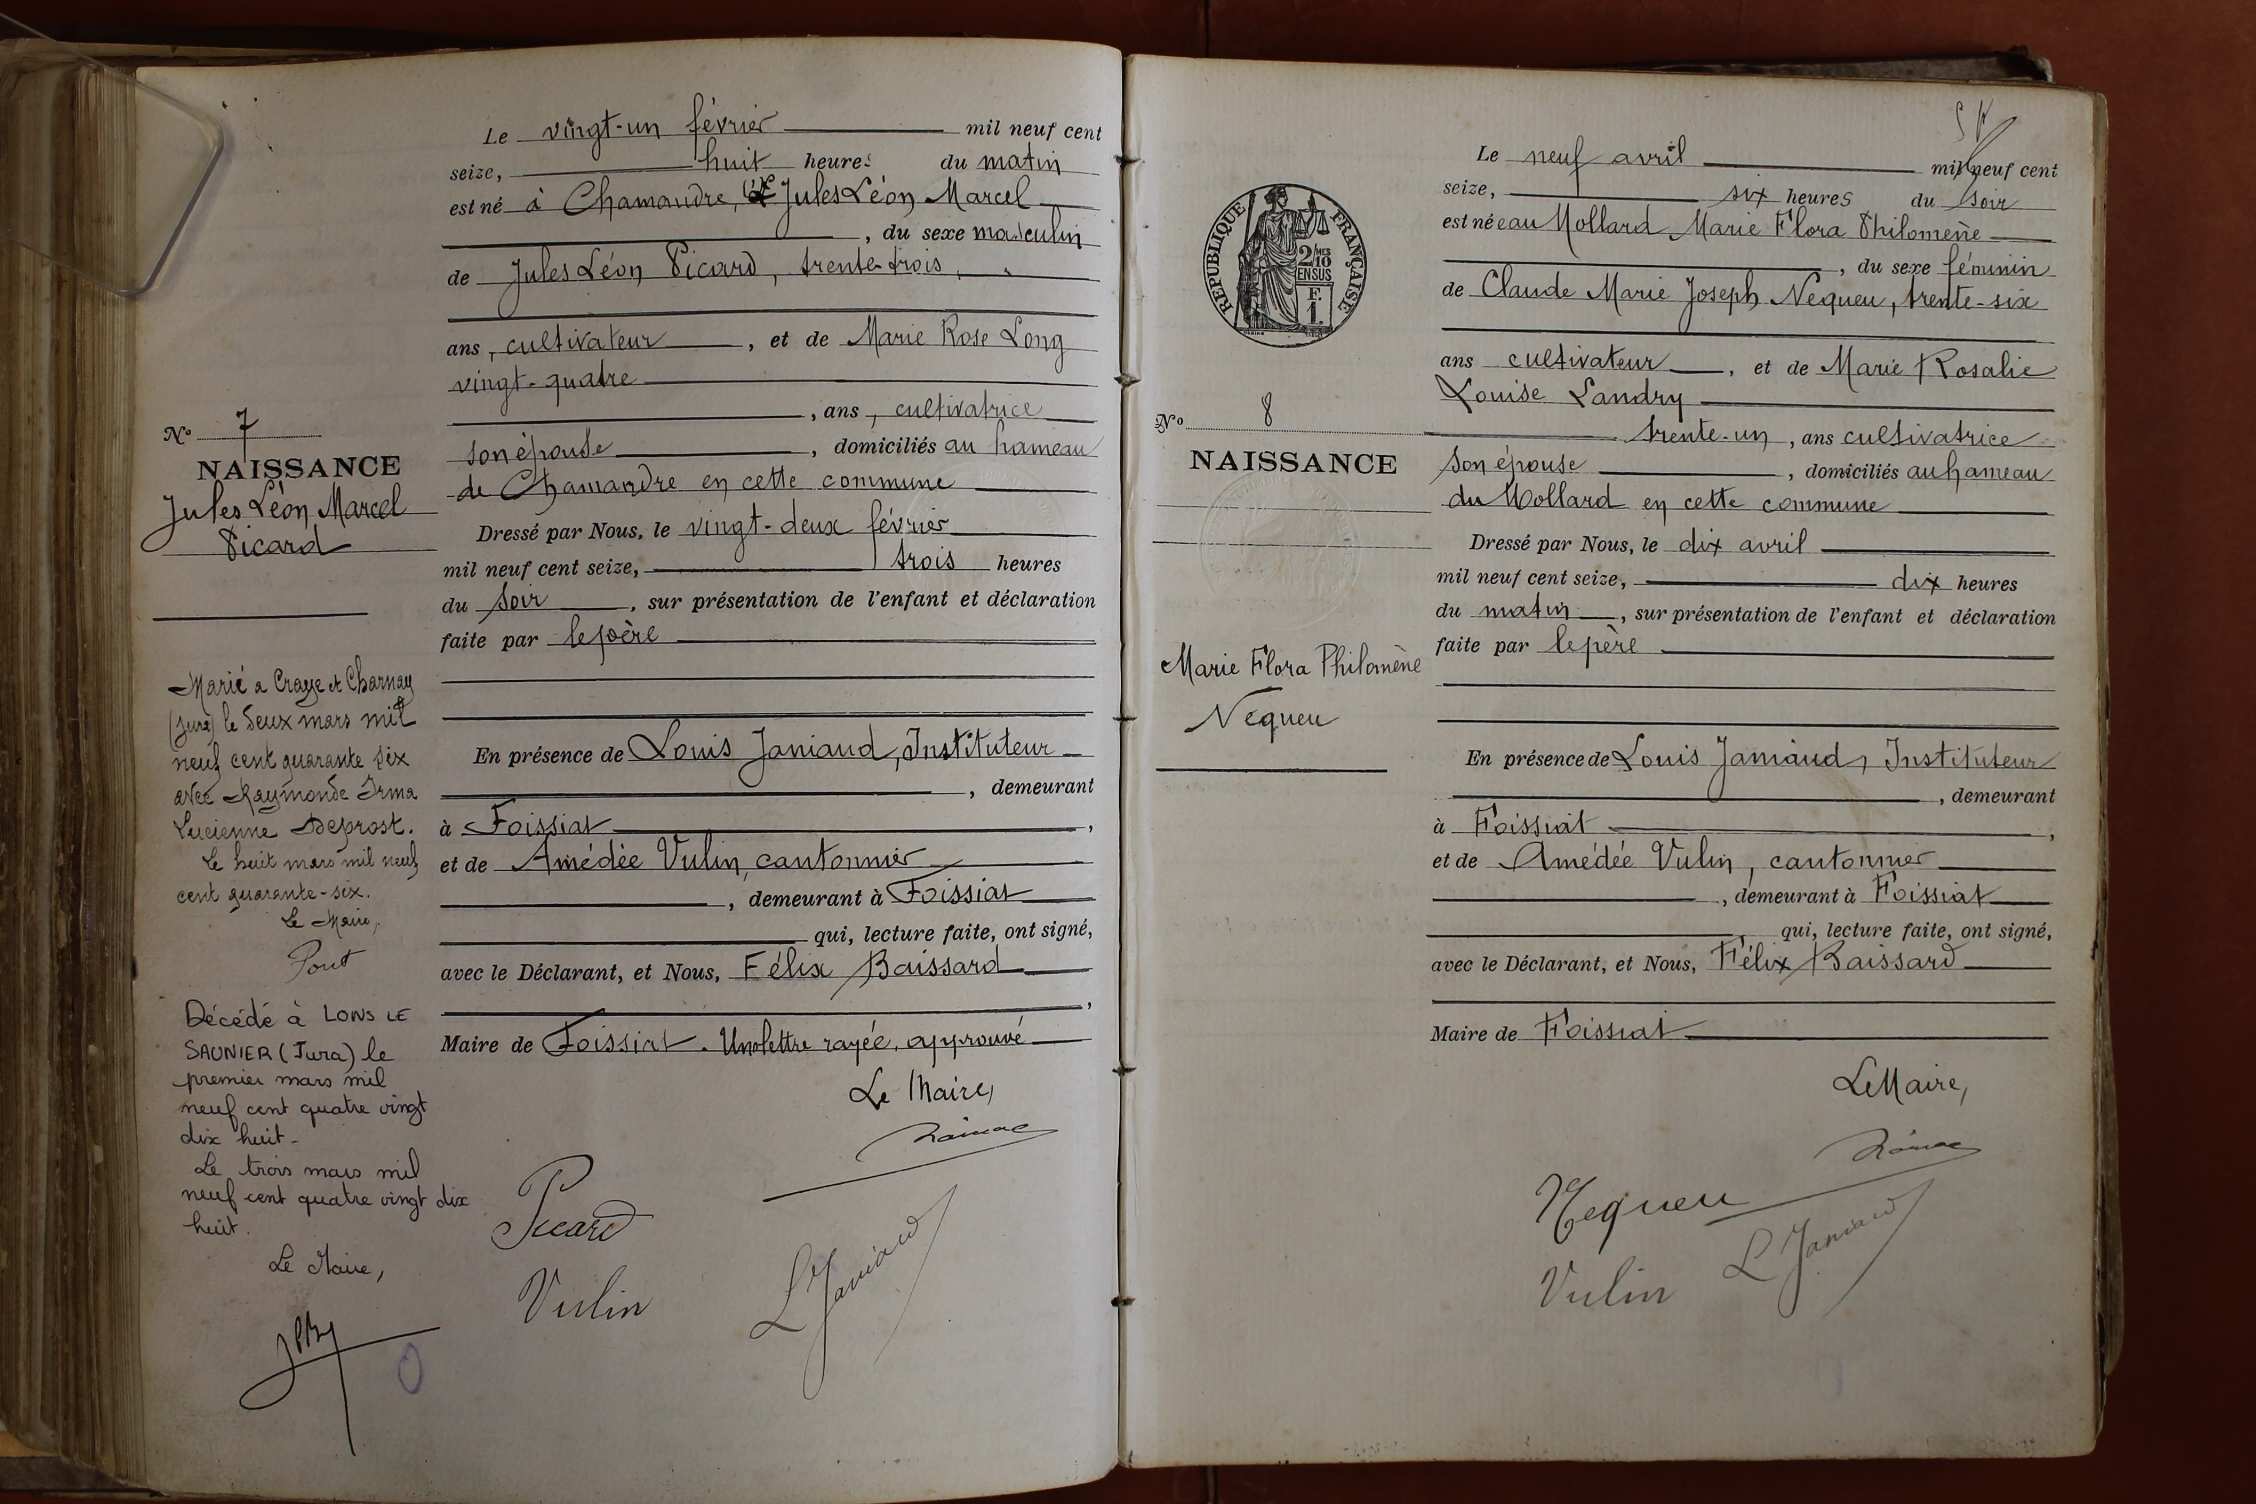 Le vingt-un février mil neuf cent
seize, huit heures du matin
est né à Chamandre, Jules Léon Marcel
, du sexe masculin
de Jules Léon Picard, trente-trois,
ans, cultivateur, et de Marie Rose Long
vingt-quatre
, ans, cultivatrice
son épouse, domiciliés au hameau
de Chamandre en cette commune
Dressé par Nous, le vingt-deux février
mil neuf cent seize, trois heures
du soir, sur présentation de l'enfant et déclaration
faite par le père
En présence de Louis Janiaud, Instituteur
, demeurant
à Foissiat,
et de Amédée Vulin, cantonnier
, demeurant à Foissiat
qui, lecture faite, ont signé,
avec le Déclarant, et Nous, Félix Baissard
,
Maire de Foissiat. Une lettre rayée, approuvé
Le Maire,
Picard
Vulin
L Janiaud
No 7
NAISSANCE
Jules Léon Marcel
Picard
Marié a Crage et Charnay
(Jura) le deux mars mil
neuf cent quarante six
avec Raymonde Irma
Lucienne Deprost.
Le huit mars mil neuf
cent quarante-six.
Le Maire,
Pont
Décédé à LONS LE
SAUNIER (Jura) le
premier mars mil
neuf cent quatre vingt
dix huit-
Le trois mars mil
neuf cent quatre vingt dix
huit.
Le Maire,
RÉPUBLIQUE FRANÇAISE
2/10 MES
EN SUS
F.
1.
No 8
NAISSANCE
Marie Flora Philomène
Nequeu
Le neuf avril mil neuf cent
seize, six heures du soir
est née au Mollard Marie Flora Philomène
, du sexe féminin
de Claude Marie Joseph Nequeu, trente-six
ans cultivateur, et de Marie Rosalie
Louise Landry
trente-un, ans cultivatrice
son épouse, domiciliés au hameau
du Mollard en cette commune
Dressé par Nous, le dix avril
mil neuf cent seize, dix heures
du matin, sur présentation de l'enfant et déclaration
faite par le père
En présence de Louis Janiaud, Instituteur
, demeurant
à Foissiat,
et de Amédée Vulin, cantonnier
, demeurant à Foissiat
qui, lecture faite, ont signé,
avec le Déclarant, et Nous, Félix Baissard
Maire de Foissiat
Le Maire,
Nequeu
L Janiaud
Vulin